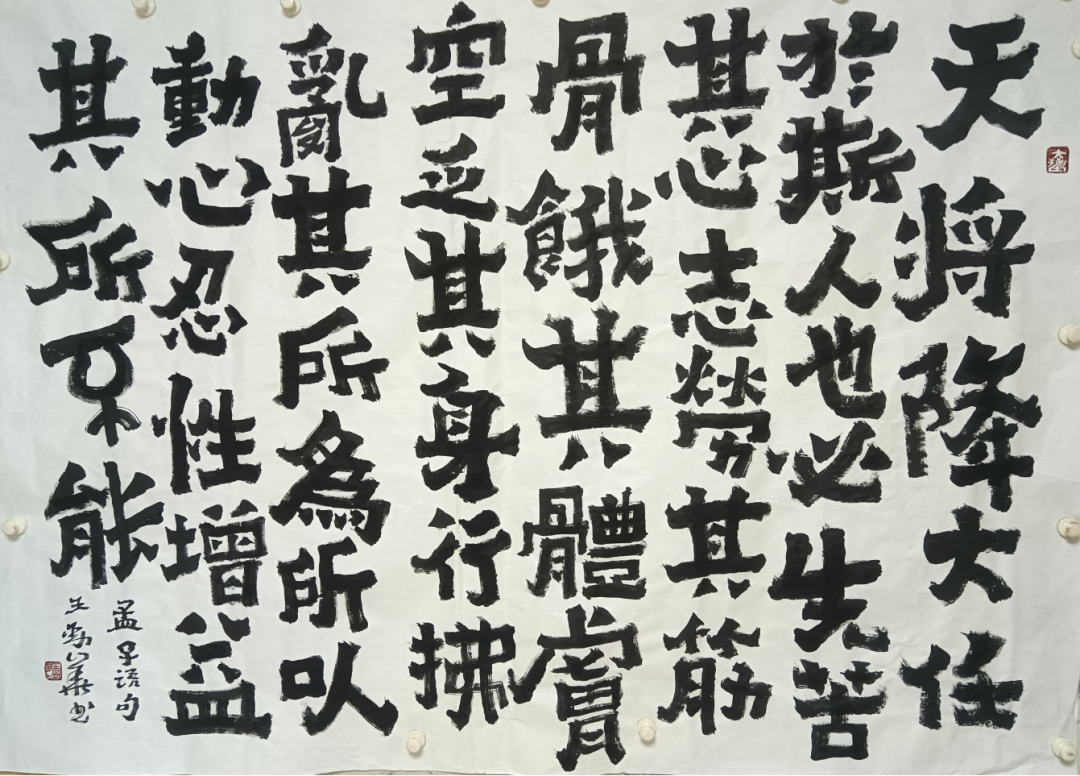 天将降大任
於斯人也必先苦
其心志勞其筋
骨餓其體膚
空乏其身行拂
亂其所為所以
動心忍性增益
其所不能
孟子语句